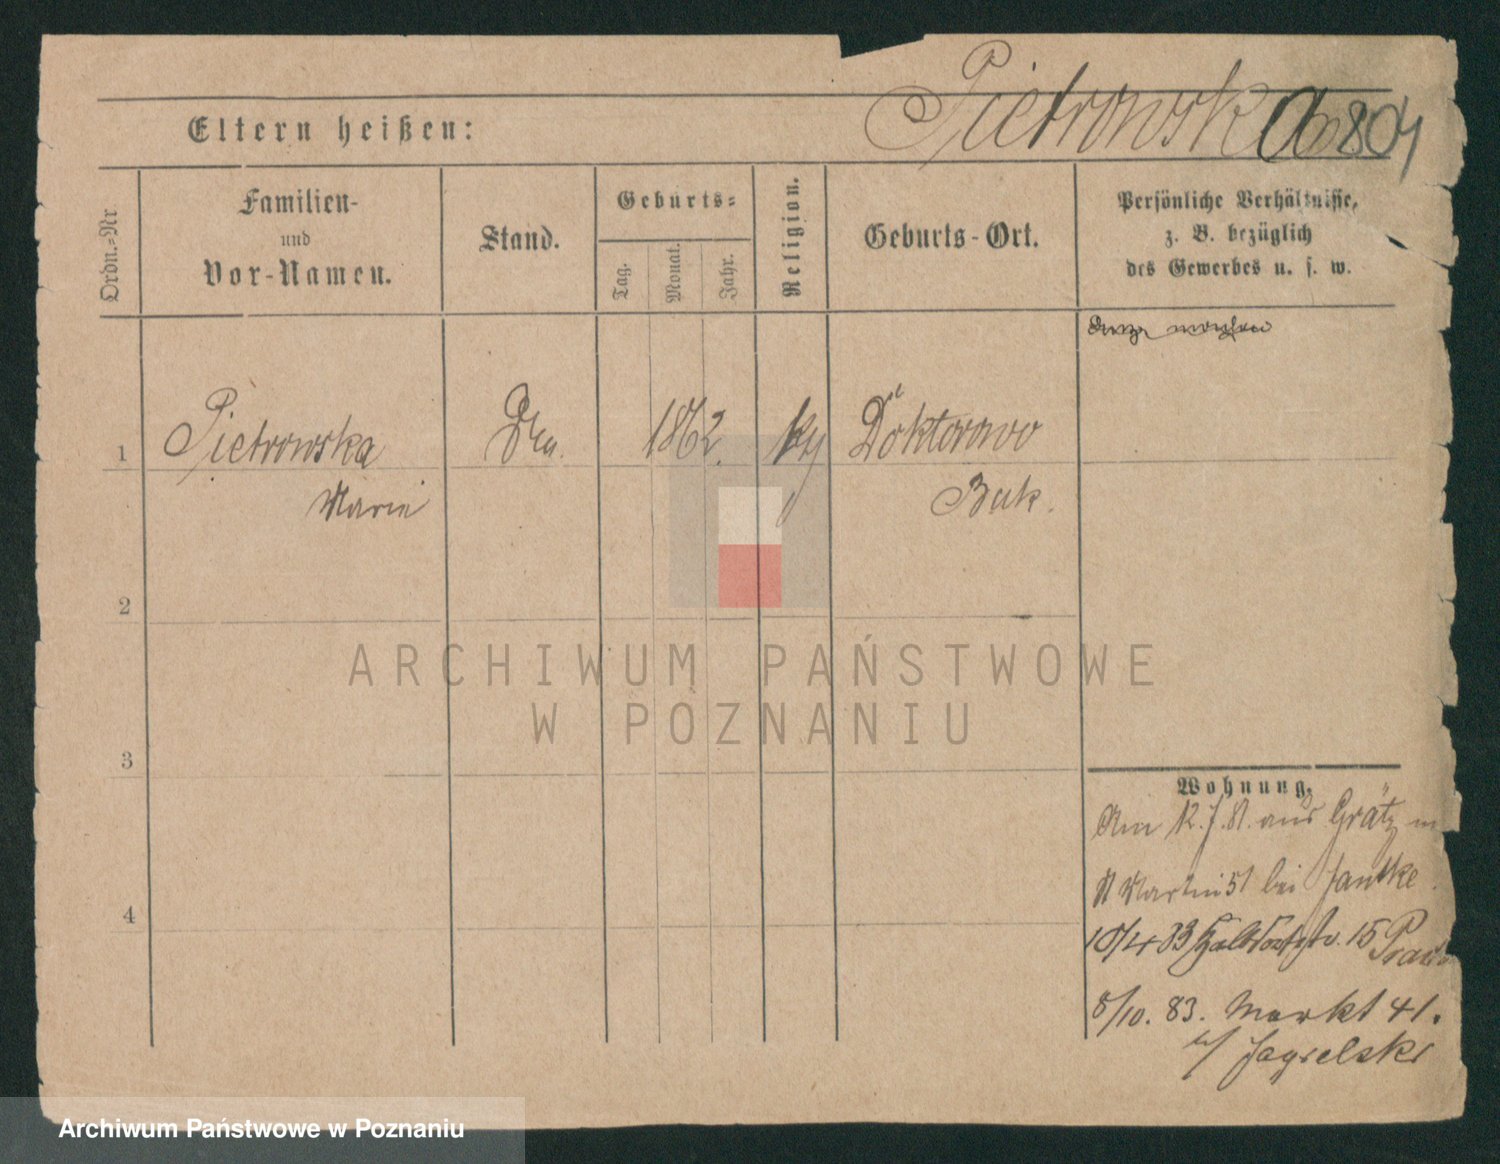 Pietrowska 804
Eltern heißen:
Ordn.=Nr
Familien-
und
Vor-Namen.
Stand.
Geburts=
Tag.
Monat.
Jahr.
Religion.
Geburts-Ort.
Persönliche Verhältnisse,
z. B. bezüglich
des Gewerbes u. s. w.
1
Pietrowska
1862.
Doktorowo
Marie
Buk.
2
3
4
ARCHIWUM PAŃSTWOWE
W POZNANIU
Wohnung.
Am 12.7.81. aus Grätz
St Martin 51 bei Jantke
10/4 83 15
8/10. 83. Markt 41.
b/ Jagielski
Archiwum Państwowe w Poznaniu